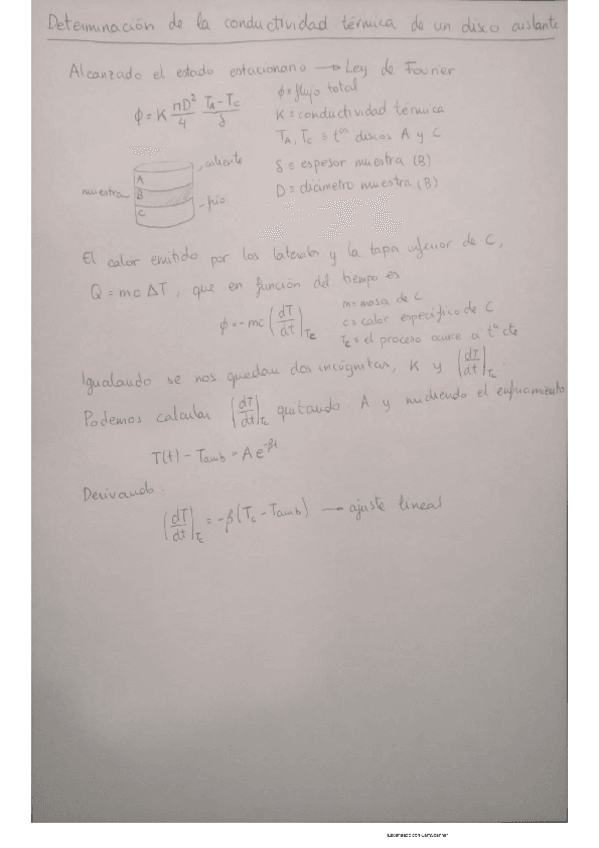 Determinación de la conductividad térmica de un disco aislante
Alcanzado el estado estacionario → Ley de Fourier
ϕ = K πD²/4 (T_A - T_C)/δ
ϕ = flujo total
K = conductividad térmica
T_A, T_C = tᵃˢ discos A y C
δ = espesor muestra (B)
D = diámetro muestra (B)
caliente
A
muestra
B
C
frío
El calor emitido por los laterales y la tapa inferior de C,
Q = mcΔT, que en función del tiempo es
ϕ = -mc (dT/dt)_Tc
m = masa de C
c = calor específico de C
Tc = el proceso ocurre a tᵃ cte
Igualando se nos quedan dos incógnitas, K y (dT/dt)_Tc.
Podemos calcular (dT/dt)_Tc quitando A y midiendo el enfriamiento
T(t) - Tamb = A e^-βt
Derivando:
(dT/dt)_Tc = -β(Tc - Tamb) → ajuste lineal
Escaneado con CamScanner